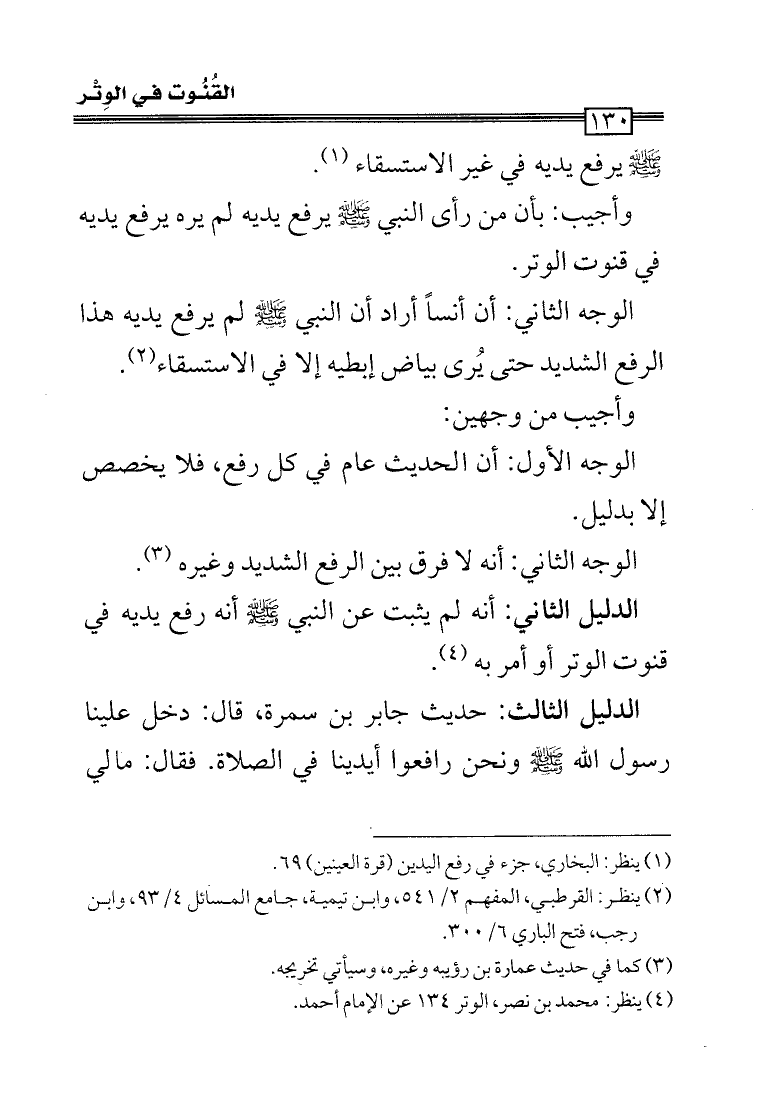 القُنُوت في الوِتْر
١٣٠
ﷺ يرفع يديه في غير الاستسقاء (١).
وأجيب: بأن من رأى النبي ﷺ يرفع يديه لم يره يرفع يديه
في قنوت الوتر.
الوجه الثاني: أن أنساً أراد أن النبي ﷺ لم يرفع يديه هذا
الرفع الشديد حتى يُرى بياض إبطيه إلا في الاستسقاء(٢).
وأجيب من وجهين:
الوجه الأول: أن الحديث عام في كل رفع، فلا يخصص
إلا بدليل.
الوجه الثاني: أنه لا فرق بين الرفع الشديد وغيره (٣).
الدليل الثاني: أنه لم يثبت عن النبي ﷺ أنه رفع يديه في
قنوت الوتر أو أمر به (٤).
الدليل الثالث: حديث جابر بن سمرة، قال: دخل علينا
رسول الله ﷺ ونحن رافعوا أيدينا في الصلاة. فقال: مالي
(١) ينظر: البخاري، جزء في رفع اليدين (قرة العينين) ٦٩.
(٢) ينظر: القرطبي، المفهم ٢/ ٥٤١، وابن تيمية، جامع المسائل ٤/ ٩٣، وابن
رجب، فتح الباري ٦/ ٣٠٠.
(٣) كما في حديث عمارة بن رؤيبه وغيره، وسيأتي تخريجه.
(٤) ينظر: محمد بن نصر، الوتر ١٣٤ عن الإمام أحمد.